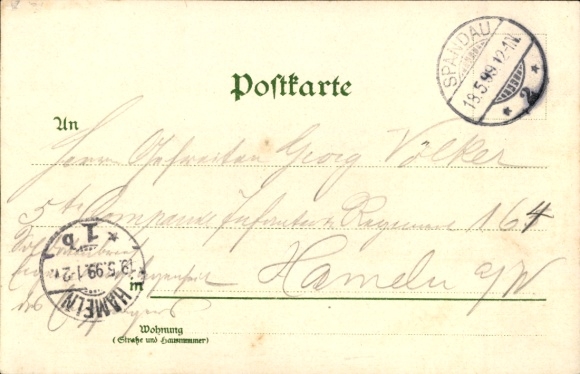 Postkarte
SPANDAU
18.5.99.12-1N.
* 2 *
An
Herrn Gefreiten Georg Völker
5te Compagnie Infanterie Regiment 164
Hameln a/W
in
HAMELN
1b
des
Wohnung
(Straße und Hausnummer)